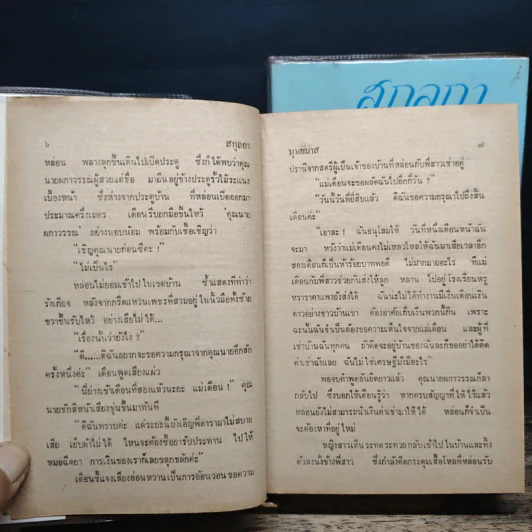 สกุลกา
๖ สกุลกา
หล่อน พลางลุกขึ้นเดินไปเปิดประตู ซึ่งก็ได้พบว่าคุณ
นายผกาวรรณผู้สวยแต่ชื่อ มายืนอยู่ข้างประตูรั้วไม้ระแนง
เบื้องหน้า ซึ่งห่างจากประตูบ้าน ที่หล่อนเปิดออกมา
ประมาณครึ่งเมตร เดือนรีบยกมือขึ้นไหว้ 'คุณนาย
ผกาวรรณ' อย่างนอบน้อม พร้อมกับเชื้อเชิญว่า
"เชิญคุณนายก่อนซีคะ !"
"ไม่เป็นไร"
หล่อนไม่ยอมเข้าไปในเขตบ้าน ซ้ำแสดงทีท่าว่า
รังเกียจ หลังจากกรีดแหวนเพชรที่สวมอยู่ในนิ้วมือทั้งซ้าย
ขวาขึ้นรับไหว้ อย่างเสียไม่ได้...
"เรื่องนั้นว่ายังไง ?"
"ดิ.....ดิฉันอยากจะขอความกรุณาจากคุณนายอีกสัก
ครั้งหนึ่งค่ะ" เดือนพูดเสียงแผ่ว
"นี่ย่างเข้าเดือนที่สองแล้วนะยะ แม่เดือน !" คุณ
นายชักสีหน้าเสียงขุ่นขึ้นมาทันที
"ดิฉันทราบค่ะ แต่ระยะนี้บังเอิญพี่ดารามาไม่สบาย
เสีย เย็บผ้าไม่ได้ ไหนจะต้องซื้อยารับประทาน ไปให้
หมอฉีดยา การเงินของเราก็เลยขลุกขลักค่ะ"
เดือนชี้แจงเสียงอ่อนหวานเป็นการอ้อนวอนขอความ
บุษย์มาส ๗
ปรานีจากสตรีผู้เป็นเจ้าของบ้านที่หล่อนกับพี่สาวเช่าอยู่
"แม่เดือนจะขอผลัดฉันไปอีกกี่วัน ?"
"วันนี้วันที่ยี่สิบแล้ว ดิฉันขอความกรุณาไปถึงสิ้น
เดือนค่ะ"
"เอาละ ! ฉันอนุโลมให้ วันที่หนึ่งเดือนหน้าฉัน
จะมา หวังว่าแม่เดือนคงไม่เหลวไหลให้ฉันมาเสียเวลาอีก
สองเดือนก็เป็นห้าร้อยบาทพอดี ไม่มากมายอะไร ที่แม่
เดือนกับพี่สาวช่วยกันส่งให้ลูก หลาน ไปอยู่โรงเรียนหรู
หราราคาแพงยังส่งได้ ฉันน่ะไม่ได้ทำงานมีเงินเดือนเงิน
ดาวอย่างชาวบ้านเขา ต้องอาศัยเก็บเงินพวกนี้กิน เพราะ
ฉะนั้นฉันจำเป็นต้องขอความเห็นใจจากแม่เดือน และผู้ที่
เช่าบ้านฉันทุกคน ถ้าคิดจะอยู่บ้านของฉันละก็ขออย่าได้ติด
ค่าเช่าฉันเลย ฉันไม่ใช่เศรษฐีมั่งมีอะไร"
พอจบคำพูดยืนยืดยาวแล้ว คุณนายผกาวรรณก็ลา
กลับไป ซึ่งบอกให้เดือนรู้ว่า หากครบสัญญาที่ให้ไว้แล้ว
หล่อนยังไม่สามารถนำเงินค่าเช่ามาให้ได้ หล่อนก็จำเป็น
จะต้องหาที่อยู่ใหม่
หญิงสาวเดินระทดระทวยกลับเข้าไปในบ้านและทิ้ง
ตัวลงนั่งข้างพี่สาว ซึ่งกำลังคิดกระดุมเสื้อโหลที่หล่อนรับ